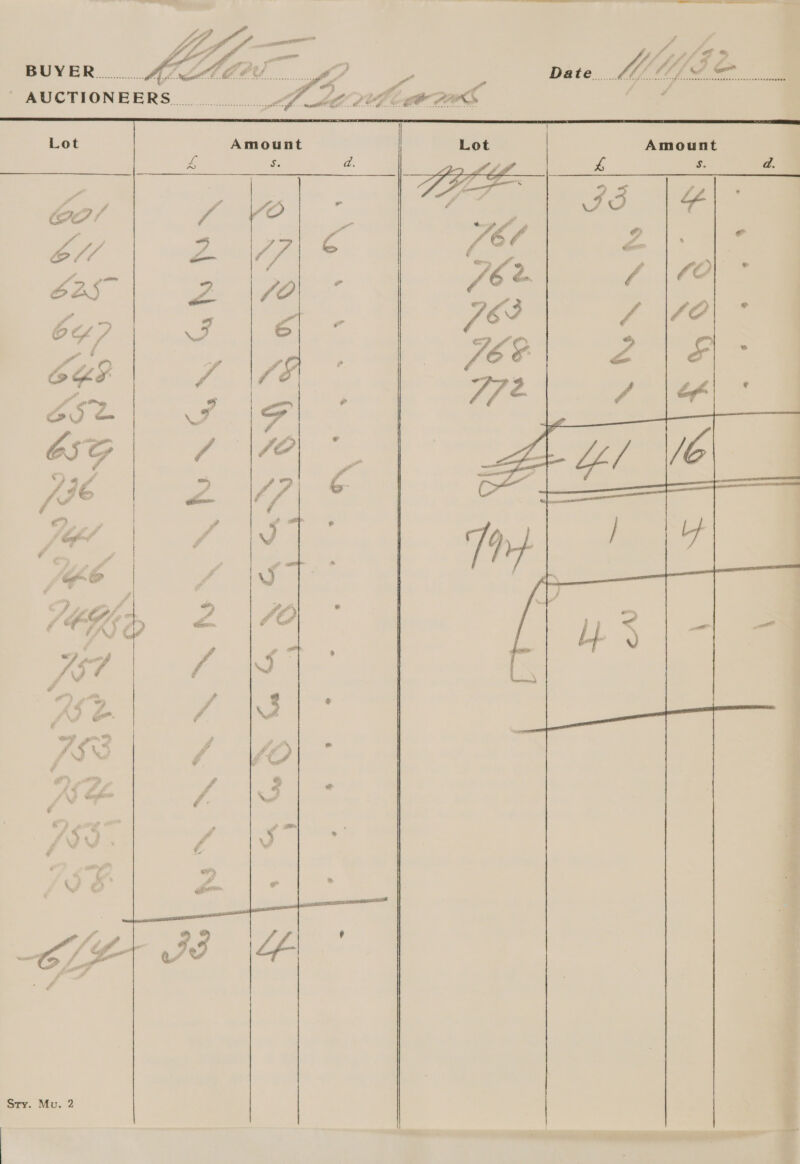 BUYER Date 11/11/32
AUCTIONEERS Bonhams
Lot Amount Lot Amount
£ s. d. £ s. d.
601 1 10 - B/F 33 4 -
611 2 17 6 761 2 - -
625 2 10 - 762 1 10 -
647 3 6 - 763 1 10 -
648 1 18 - 768 2 8 -
652 3 9 - 772 1 4 -
659 1 10 - £ 41 16
736 2 17 6
741 1 5 - 794 1 4
746 1 5 -
749/50 2 10 - £ 43 - -
751 1 5 -
752 1 3 -
753 1 10 -
754 1 3 -
755 1 5 -
758 2 - -
C/F 33 4 -
Sty. Mu. 2